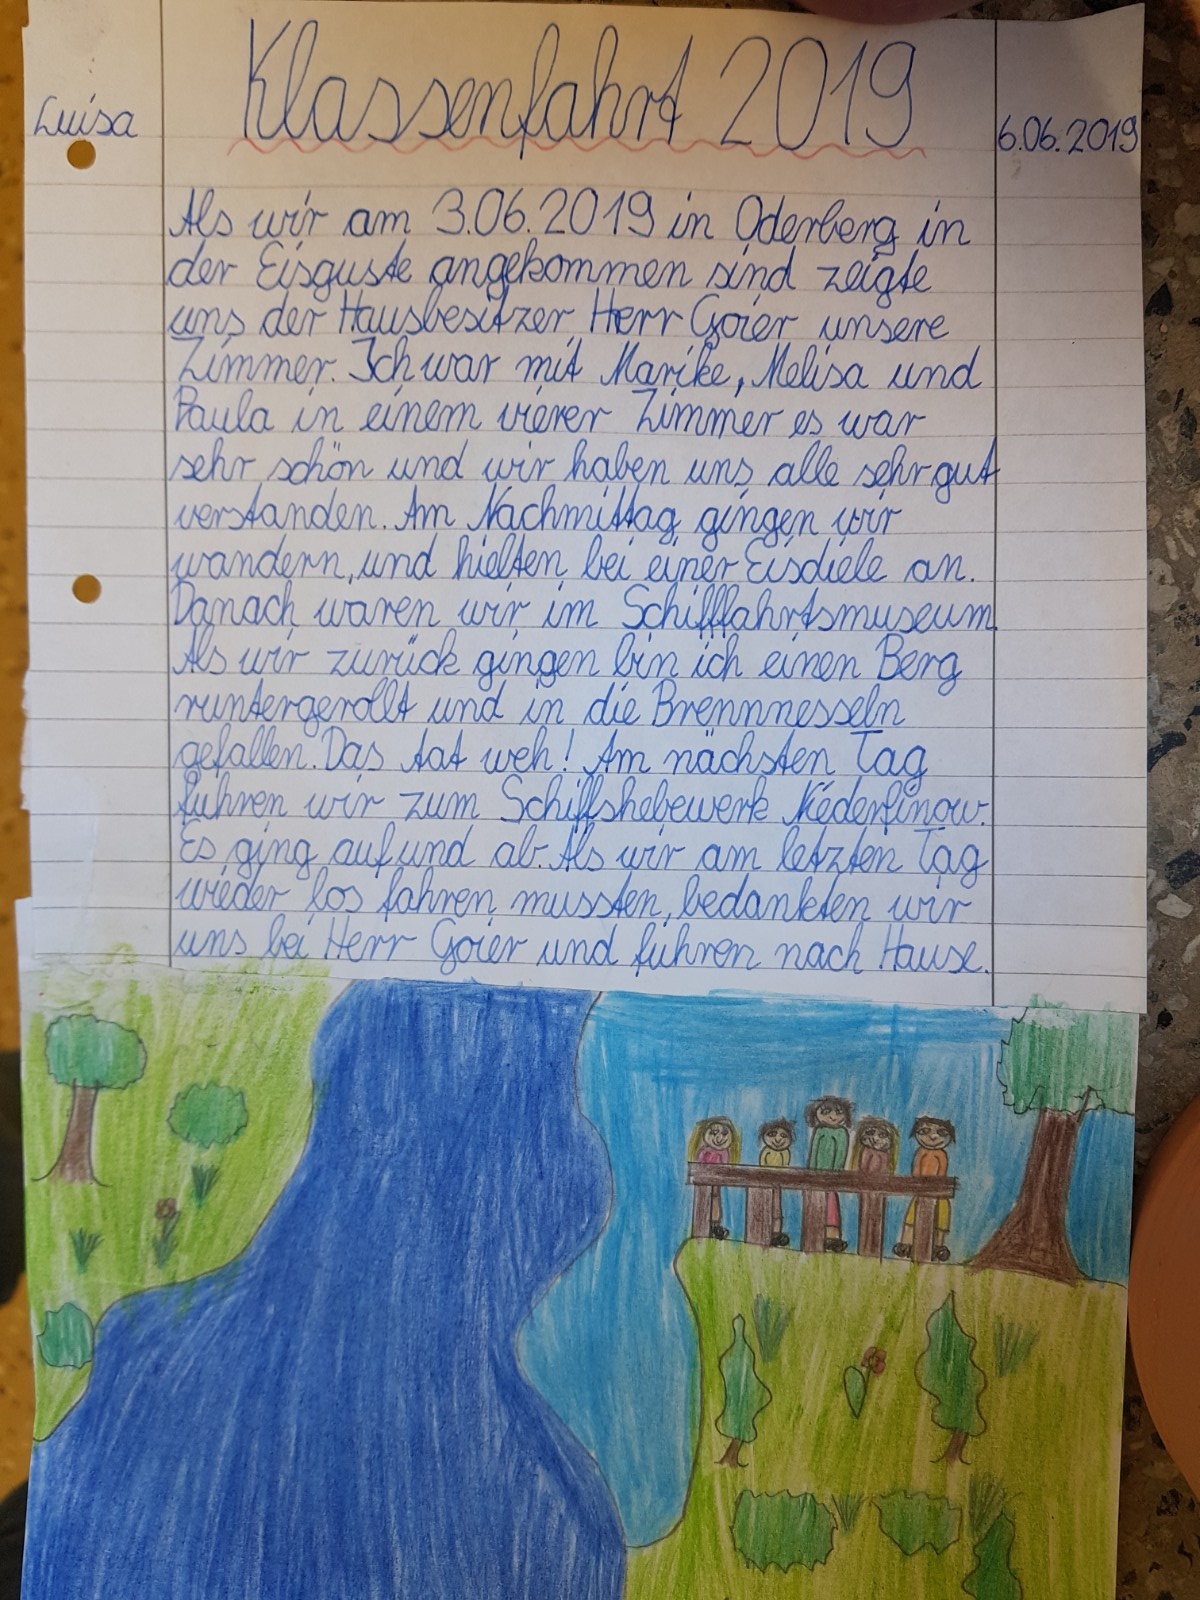 Klassenfahrt 2019
Luisa
6.06.2019
Als wir am 3.06.2019 in Oderberg in
der Eisguste angekommen sind zeigte
uns der Hausbesitzer Herr Goier unsere
Zimmer. Ich war mit Marike, Melisa und
Paula in einem vierer Zimmer es war
sehr schön und wir haben uns alle sehr gut
verstanden. Am Nachmittag gingen wir
wandern, und hielten bei einer Eisdiele an.
Danach waren wir im Schifffahrtsmuseum.
Als wir zurück gingen bin ich einen Berg
runtergerollt und in die Brennnesseln
gefallen. Das tat weh! Am nächsten Tag
fuhren wir zum Schiffshebewerk Niederfinow.
Es ging auf und ab. Als wir am letzten Tag
wieder los fahren mussten, bedankten wir
uns bei Herr Goier und fuhren nach Hause.